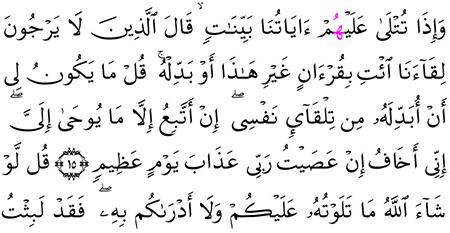 وَإِذَا تُتْلَىٰ عَلَيْهِمْ ءَايَاتُنَا بَيِّنَاتٍۙ قَالَ ٱلَّذِينَ لَا يَرْجُونَ
لِقَآءَنَا ٱئْتِ بِقُرْءَانٍ غَيْرِ هَٰذَآ أَوْ بَدِّلْهُۚ قُلْ مَا يَكُونُ لِىٓ
أَنْ أُبَدِّلَهُۥ مِن تِلْقَآئِ نَفْسِىٓۖ إِنْ أَتَّبِعُ إِلَّا مَا يُوحَىٰٓ إِلَىَّۖ
إِنِّىٓ أَخَافُ إِنْ عَصَيْتُ رَبِّى عَذَابَ يَوْمٍ عَظِيمٍ ١٥ قُل لَّوْ
شَآءَ ٱللَّهُ مَا تَلَوْتُهُۥ عَلَيْكُمْ وَلَآ أَدْرَىٰكُم بِهِۦۖ فَقَدْ لَبِثْتُ